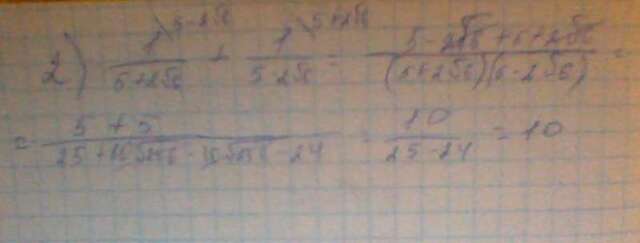 2) 1\5-2√6 / 5+2√6 + 1\5+2√6 / 5-2√6 = 5-2√6+5+2√6 / (5+2√6)(5-2√6) =
= 5+5 / 25 - 24 = 10 / 25-24 = 10